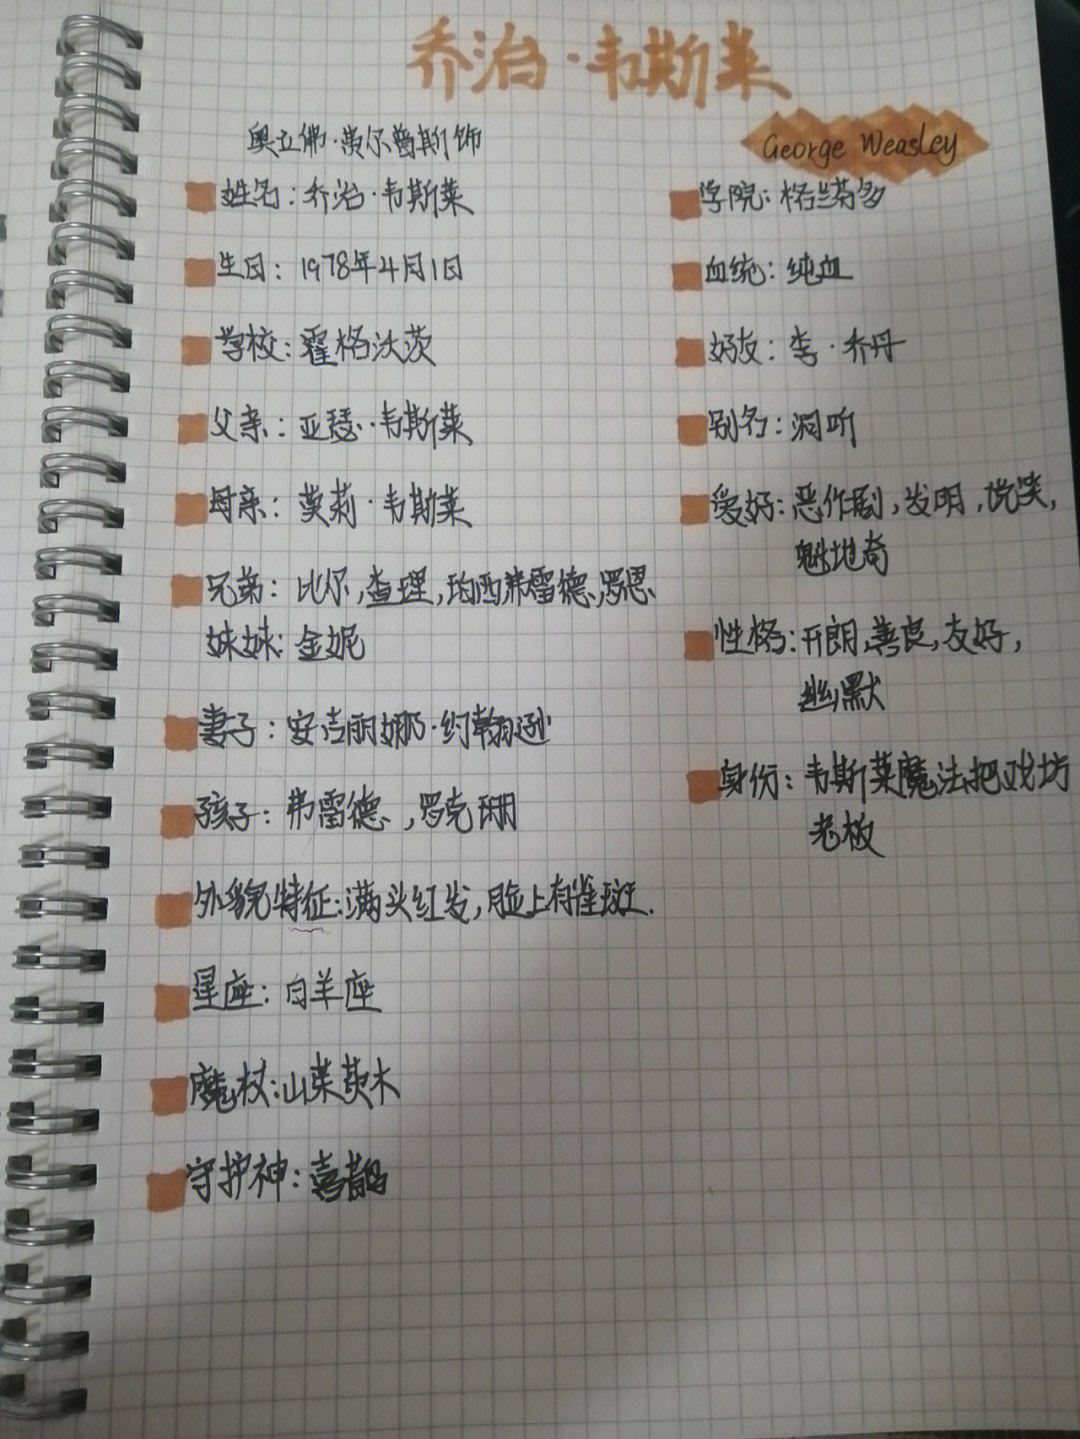 乔治·韦斯莱
George Weasley
奥立佛·费尔普斯 饰
姓名：乔治·韦斯莱
生日：1978年4月1日
学校：霍格沃茨
父亲：亚瑟·韦斯莱
母亲：莫莉·韦斯莱
兄弟：比尔，查理，珀西弗雷德，罗恩
妹妹：金妮
妻子：安吉丽娜·约翰逊
孩子：弗雷德，罗克珊
外貌特征：满头红发，脸上有雀斑.
星座：白羊座
魔杖：山茱萸木
守护神：喜鹊
学院：格兰芬多
血统：纯血
好友：李·乔丹
别名：洞听
爱好：恶作剧，发明，说笑，
魁地奇
性格：开朗，善良，友好，
幽默
身份：韦斯莱魔法把戏坊
老板